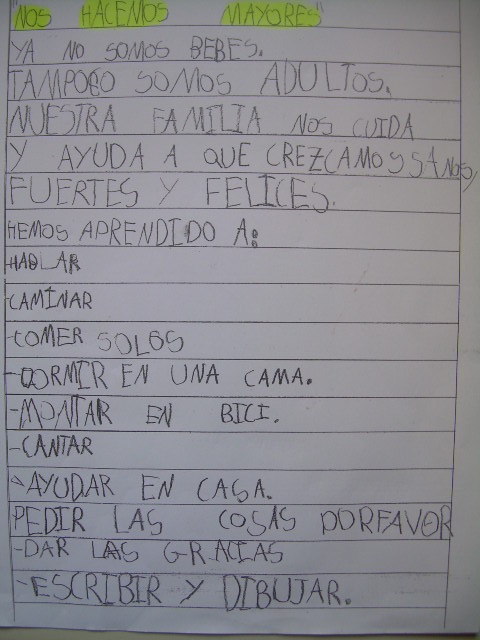 "NOS HACEMOS MAYORES"
YA NO SOMOS BEBES.
TAMPOCO SOMOS ADULTOS.
NUESTRA FAMILIA NOS CUIDA
Y AYUDA A QUE CREZCAMOS SANOS,
FUERTES Y FELICES.
HEMOS APRENDIDO A:
-HABLAR
-CAMINAR
-COMER SOLOS
-DORMIR EN UNA CAMA.
-MONTAR EN BICI.
-CANTAR
-AYUDAR EN CASA.
PEDIR LAS COSAS PORFAVOR
-DAR LAS GRACIAS
-ESCRIBIR Y DIBUJAR.